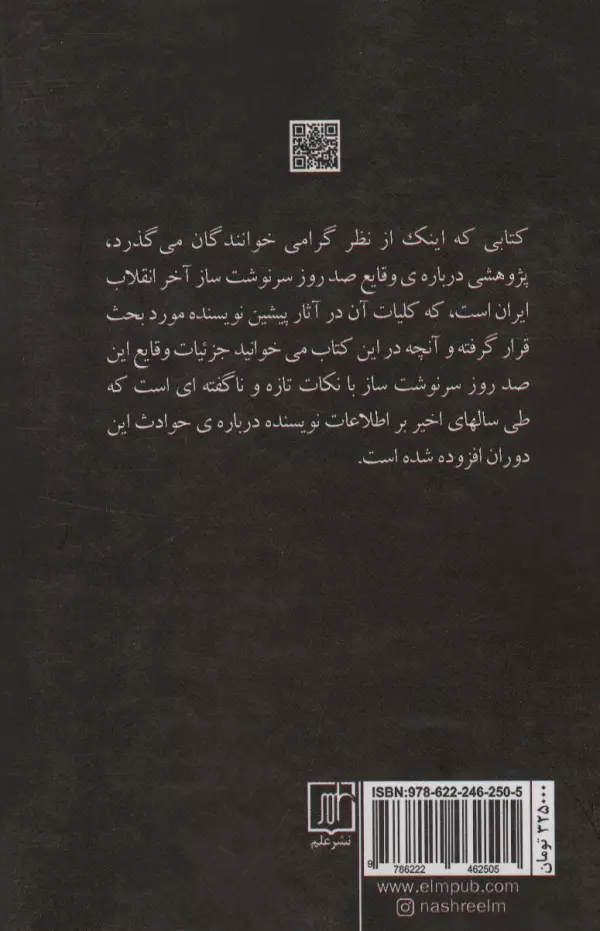 کتابی که اینک از نظر گرامی خوانندگان می‌گذرد،
پژوهشی درباره‌ی وقایع صد روز سرنوشت ساز آخر انقلاب
ایران است، که کلیات آن در آثار پیشین نویسنده مورد بحث
قرار گرفته و آنچه در این کتاب می خوانید جزئیات وقایع این
صد روز سرنوشت ساز با نکات تازه و ناگفته ای است که
طی سالهای اخیر بر اطلاعات نویسنده درباره ی حوادث این
دوران افزوده شده است.
نشر علم
ISBN:978-622-246-250-5
9 786222 462505
۳۲۵۰۰۰ تومان
www.elmpub.com
nashreelm